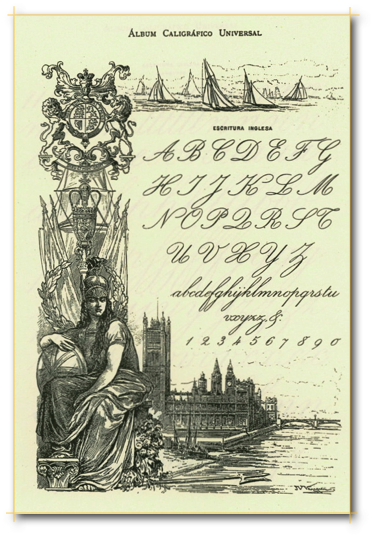 ÁLBUM CALIGRÁFICO UNIVERSAL
ESCRITURA INGLESA
A B C D E F G
H I J K L M
N O P Q R S T
U V X Y Z
abcdefghijklmnopqrstu
vxyxz.&.
1 2 3 4 5 6 7 8 9 0